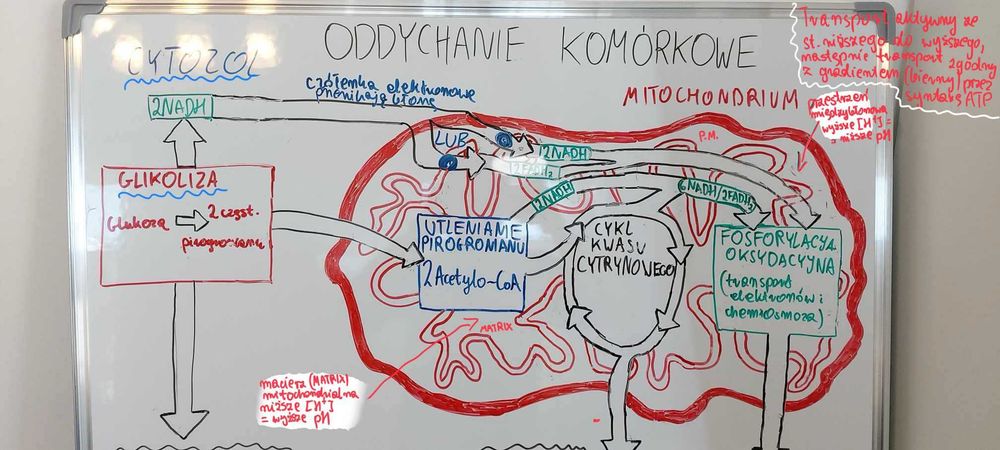 ODDYCHANIE KOMÓRKOWE
CYTOZOL
Transport aktywny ze
st. niższego do wyższego,
następnie transport zgodny
z gradientem (bierny) przez
syntazę ATP
2NADH
czółenka elektronowe
przenikają błonę
MITOCHONDRIUM
przestrzeń
międzybłonowa
wyższe [H⁺] =
= niższe pH
P.M.
LUB
2NADH
2FADH₂
2NADH
6NADH/2FADH₂
GLIKOLIZA
Glukoza
2 cząst.
pirogronianu
UTLENIANIE
PIROGRONIANU
2 Acetylo-CoA
CYKL
KWASU
CYTRYNOWEGO
FOSFORYLACJA
OKSYDACYJNA
(transport
elektronów i
chemiosmoza)
MATRIX
macierz (MATRIX)
mitochondrialna
niższe [H⁺]
= wyższe pH